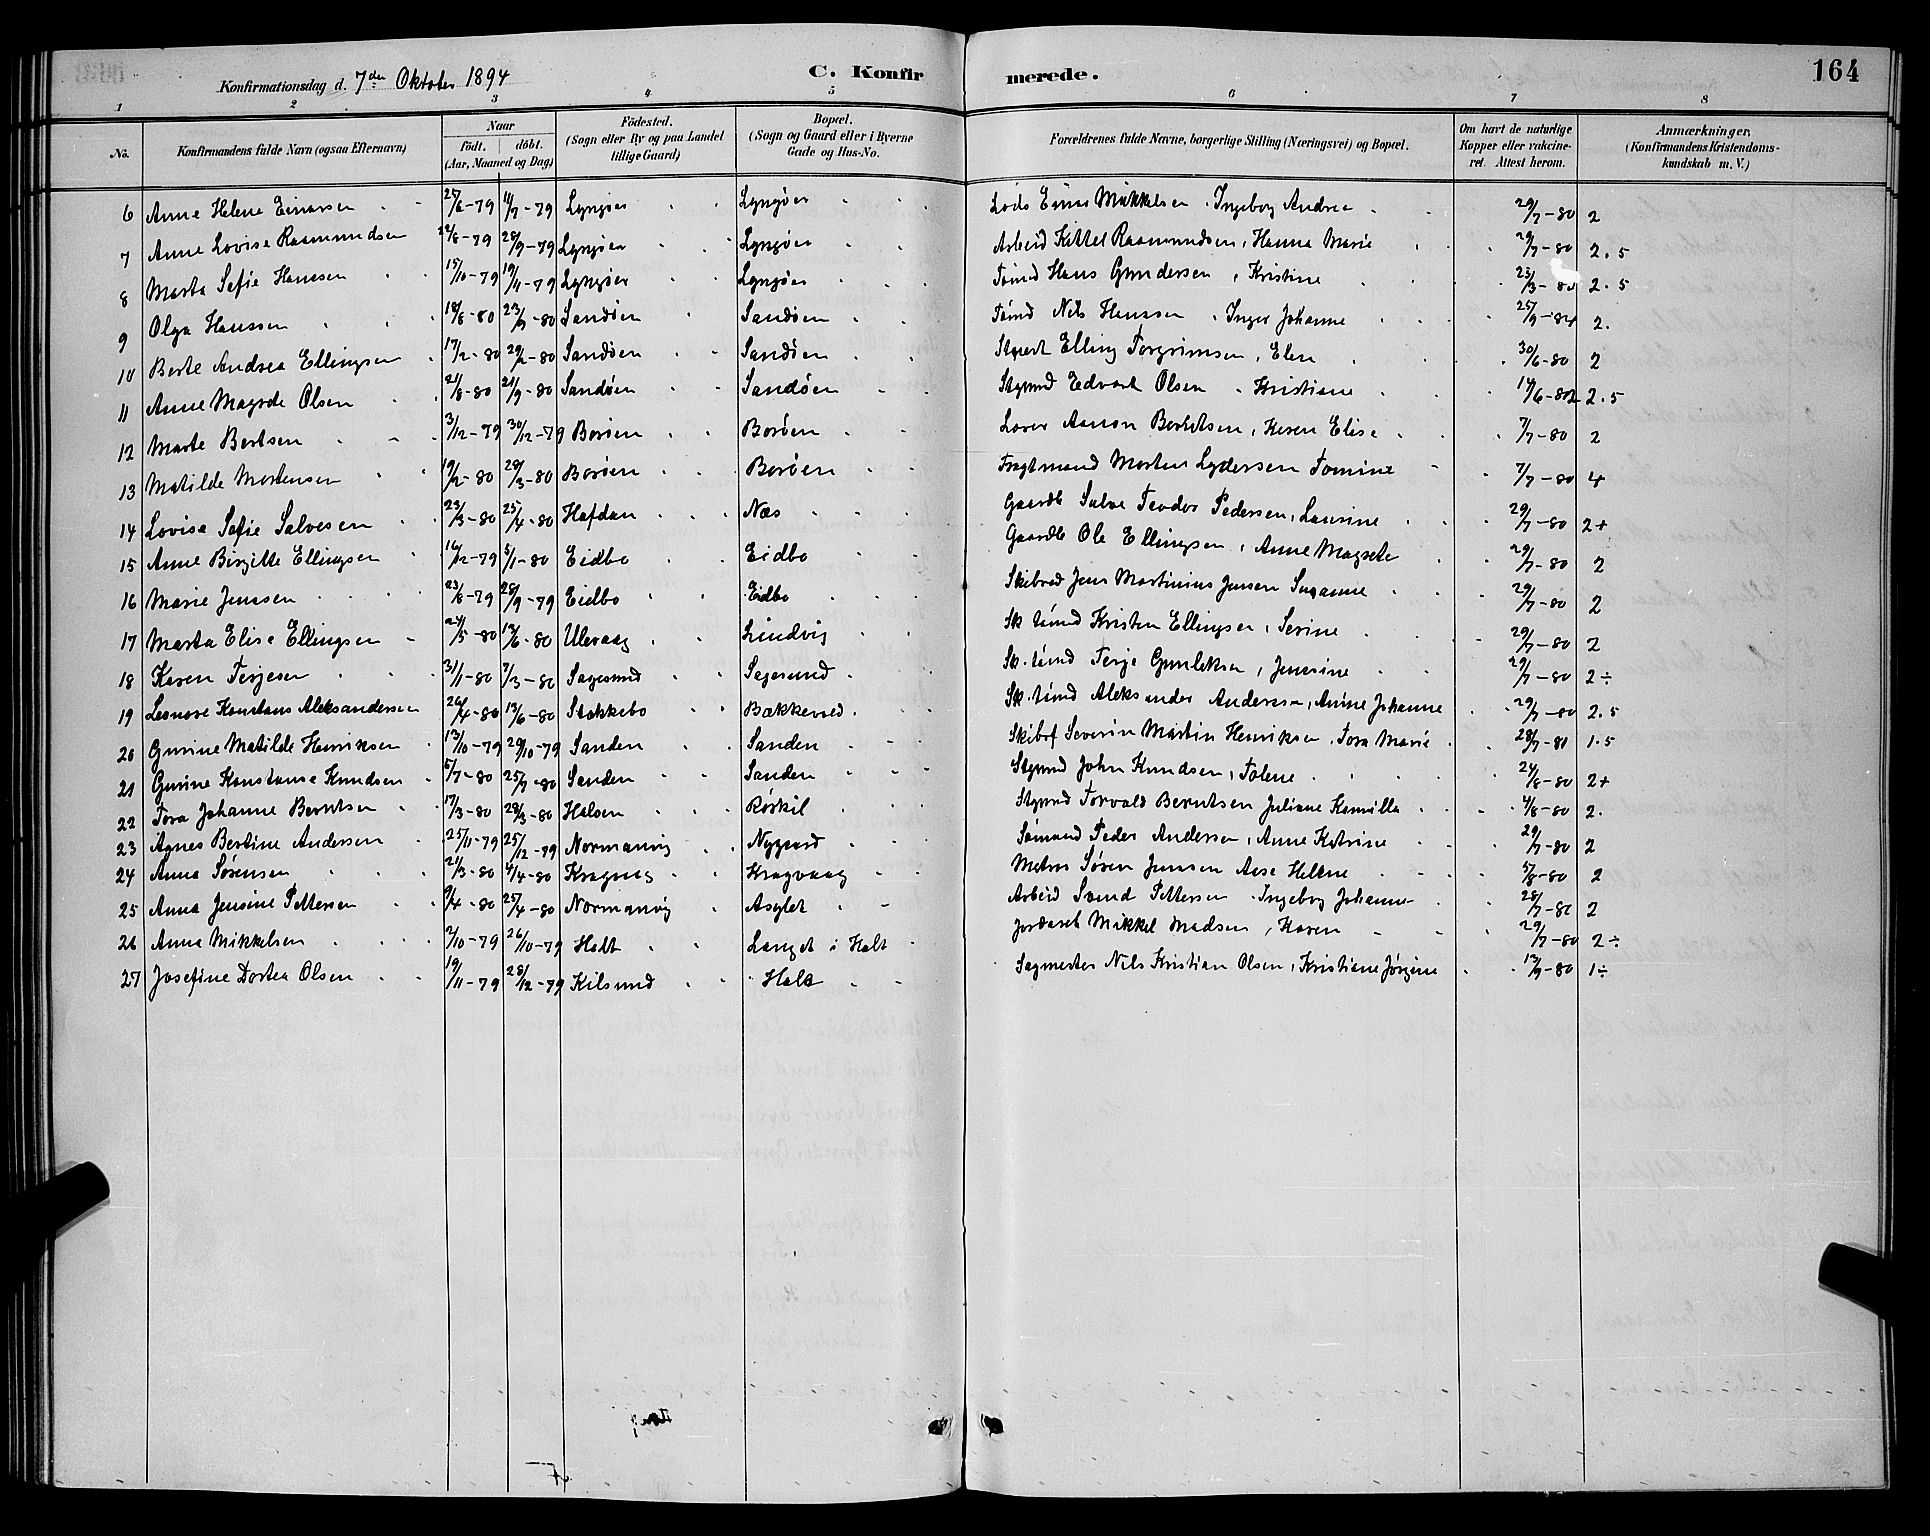 Konfirmationsdag d. 7de Oktober 1894 C. Konfirmerede. 164
1 2 3 4 5 6 7 8
No. Konfirmandens fulde Navn (ogsaa Efternavn) Naar født. døbt. (Aar, Maaned og Dag) Födested. (Sogn eller By og paa Landet tillige Gaard) Bopæl. (Sogn og Gaard eller i Byerne Gade og Hus-No. Forældrenes fulde Navne, borgerlige Stilling (Næringsvei) og Bopæl. Om havt de naturlige Kopper eller vakcineret. Attest herom. Anmærkninger, (Konfirmandens Kristendomskundskab m. V.)
6 Anne Helene Einarsen 25/6-79 11/7-79 Lyngøer Lyngøer Lods Einar Mikkelsen, Ingeborg Andrea 29/7-80 2
7 Anne Lovise Rasmundsen 22/8-79 28/9-79 Lyngøer Lyngøer Arbeid Kittel Raamundsen, Hanna Marie 29/7-80 2.5
8 Marta Sofie Hansen 15/10-79 19/11-79 Lyngøer Lyngøer Tømd Hans Gundersen, Kristine 23/3-80 2.5
9 Olga Hanssen 18/8-80 23/9-80 Sandøen Sandøen Tømd Nils Hanssen, Inger Johanne 25/9-84 2.
10 Berte Andrea Ellingsen 17/2-80 29/2-80 Sandøen Sandøen Elling Torgrimsen, Elen 30/6-80 2
11 Anne Magrde Olsen 21/8-80 21/9-80 Sandøen Sandøen Stymd Edvart Olsen, Kristiane 14/6-82 2.5
12 Marte Bertsen 3/12-79 30/12-79 Borøen Borøen Aanon Berntsen, Karen Elise 7/7-80 2
13 Matilde Mortensen 19/2-80 28/3-80 Borøen Borøen Fragtmand Morten Lydersen Tomine 7/7-80 4
14 Lovise Sofie Salvesen 23/3-80 25/4-80 Hafdan Næs Gaardb Salve Teodor Pedersen, Laurine 29/7-80 2+
15 Anne Birgitte Ellingsen 16/12-79 5/1-80 Eidbo Eidbo Gaardb Ole Ellingsen, Anne Magrete 29/7-80 2
16 Marie Jenssen 23/8-79 28/9-79 Eidbo Eidbo Skibred Jens Martinius Jensen Susanne 29/7-80 2
17 Marta Elise Ellingsen 24/5-80 13/6-80 Ulevaag Lindvig Sk tømd Kristen Ellingsen, Serine 29/7-80 2
18 Karen Terjesen 31/1-80 7/3-80 Sagesund Sagesund Sk. tømd Terje Gunleksen, Jensine 29/7-80 2÷
19 Leonore Konstans Aleksandersen 26/4-80 13/6-80 Stokkebo Bækkevold Sk. tømd Aleksander Andersen, Anine Johanne 29/7-80 2.5
20 Gurine Matilde Henriksen 13/10-79 29/10-79 Sanden Sanden Skibsf Severin Martin Henriksen, Tora Marie 28/7-81 1.5
21 Gurine Konstanse Knudsen 5/7-80 25/7-80 Sanden Sanden Stymd John Knudsen, Tolene 24/8-80 2+
22 Tora Johanne Berntsen 17/3-80 28/3-80 Halsen Røskil Stymd Torvald Berntsen Juliane Kamilla 4/8-80 2.
23 Agnes Bertine Andersen 25/11-79 25/12-79 Normanvig Nygaard Sømand Peder Andersen, Anne Katrine 29/7-80 2
24 Anna Sørensen 21/3-80 4/4-80 Kragvaag Kragvaag Matros Søren Jensen Aase Helene 5/8-80 2
25 Anna Jensine Pettersen 9/4-80 25/4-80 Normanvig Asylet Arbeid Svend Pettersen Ingeborg Johanne 28/7-80 2
26 Anna Mikkelsen 2/10-79 26/10-79 Holt Langet i Holt Mikkel Madsen, Karen 29/7-80 2÷
27 Josefine Dortea Olsen 19/11-79 28/12-79 Kilsund Holt Sagmester Nils Kristian Olsen, Kristiane Jørgine 13/9-80 1÷